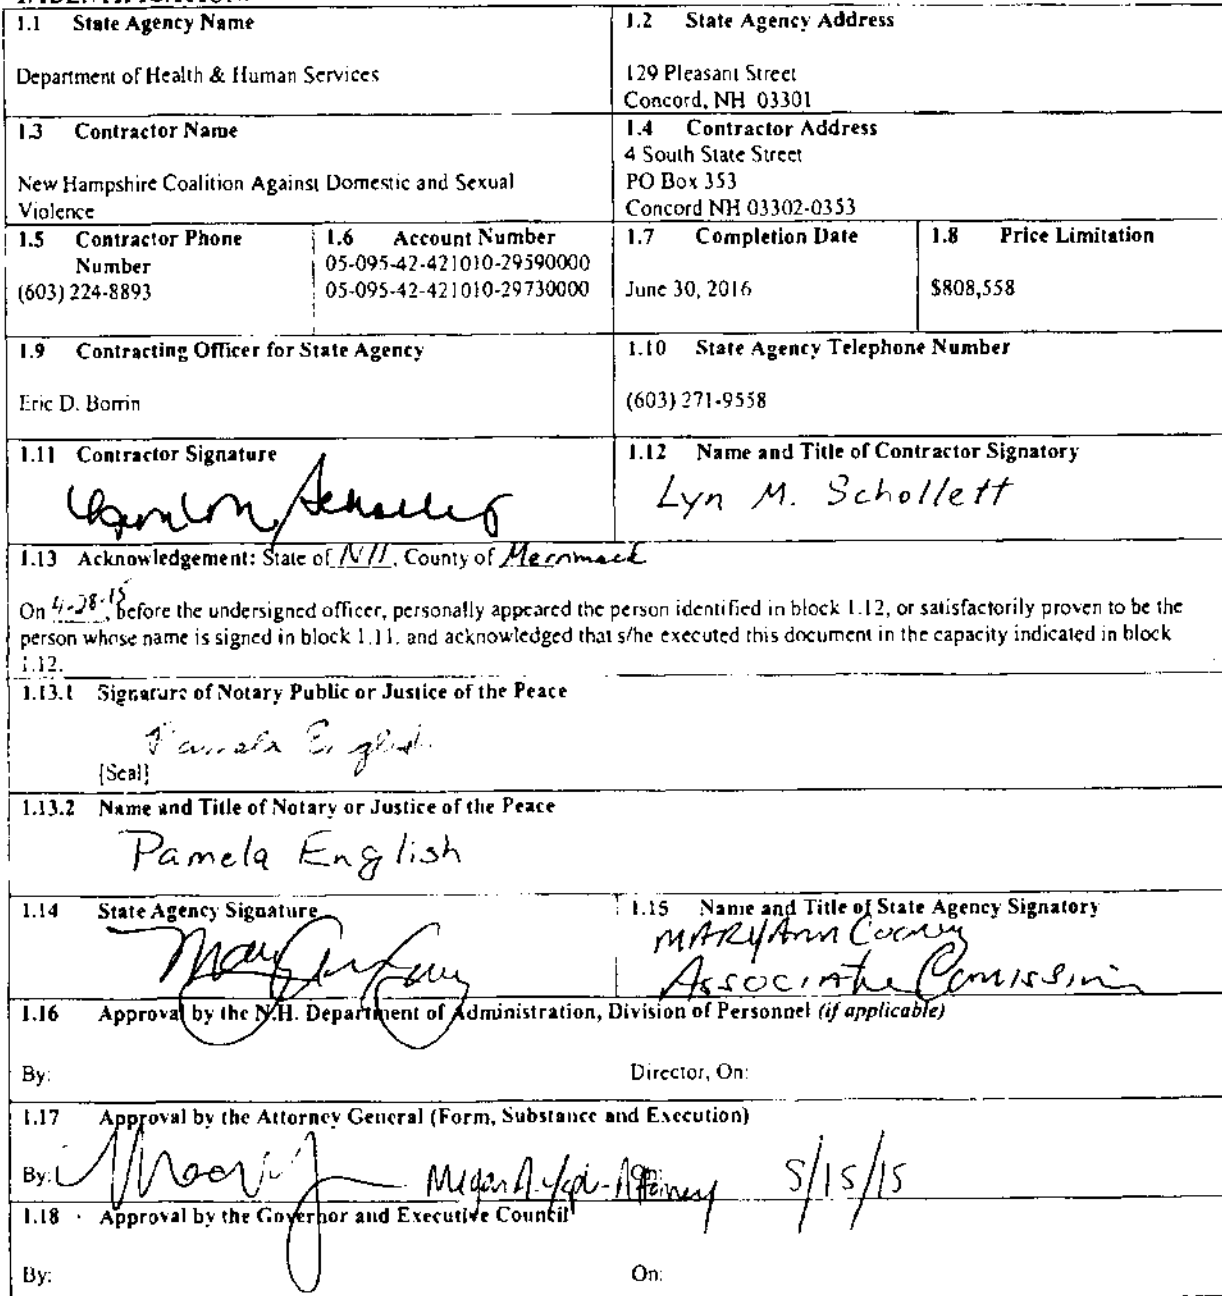 1.1 State Agency Name
Department of Health & Human Services
1.2 State Agency Address
129 Pleasant Street
Concord, NH 03301
1.3 Contractor Name
New Hampshire Coalition Against Domestic and Sexual
Violence
1.4 Contractor Address
4 South State Street
PO Box 353
Concord NH 03302-0353
1.5 Contractor Phone
Number
(603) 224-8893
1.6 Account Number
05-095-42-421010-29590000
05-095-42-421010-29730000
1.7 Completion Date
June 30, 2016
1.8 Price Limitation
$808,558
1.9 Contracting Officer for State Agency
Eric D. Borrin
1.10 State Agency Telephone Number
(603) 271-9558
1.11 Contractor Signature
1.12 Name and Title of Contractor Signatory
Lyn M. Schollett
1.13 Acknowledgement: State of NH, County of Merrimack
On 4-28-15, before the undersigned officer, personally appeared the person identified in block 1.12, or satisfactorily proven to be the
person whose name is signed in block 1.11, and acknowledged that s/he executed this document in the capacity indicated in block
1.12.
1.13.1 Signature of Notary Public or Justice of the Peace
Pamela English
[Seal]
1.13.2 Name and Title of Notary or Justice of the Peace
Pamela English
1.14 State Agency Signature
1.15 Name and Title of State Agency Signatory
MARYAnn Cooney
Associate
1.16 Approval by the N.H. Department of Administration, Division of Personnel (if applicable)
By: Director, On:
1.17 Approval by the Attorney General (Form, Substance and Execution)
By: Megan A. - Attorney On: 5/15/15
1.18 Approval by the Governor and Executive Council
By: On: